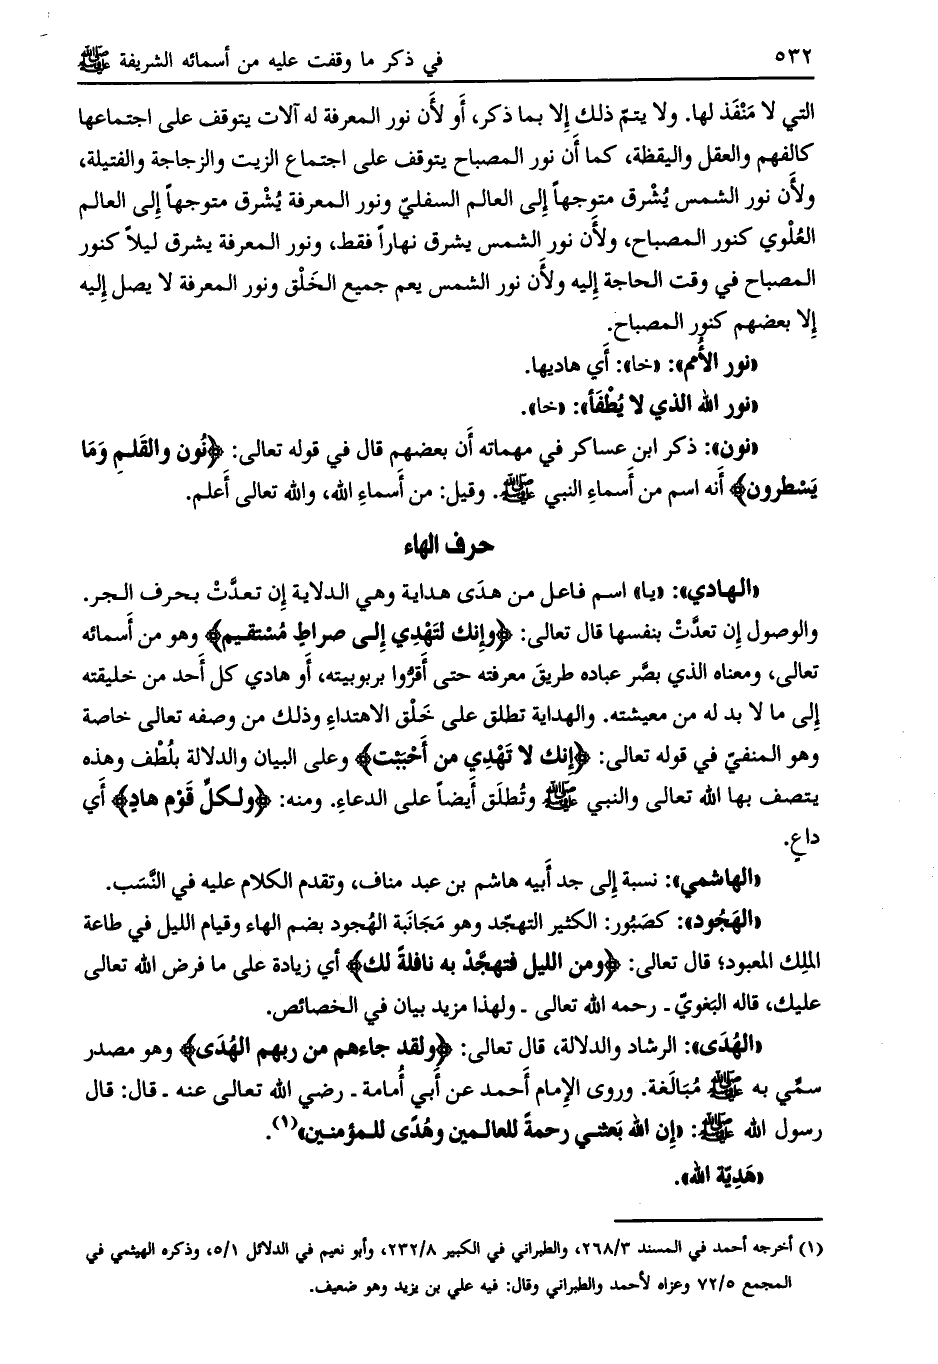 ٥٣٢ في ذكر ما وقفت عليه من أسمائه الشريفة ﷺ
التي لا مَنْفَذ لها. ولا يتمّ ذلك إلا بما ذكر، أَو لأَن نور المعرفة له آلات يتوقف على اجتماعها
كالفهم والعقل واليقظة، كما أَن نور المصباح يتوقف على اجتماع الزيت والزجاجة والفتيلة،
ولأَن نور الشمس يُشْرق متوجهاً إِلى العالم السفليّ ونور المعرفة يُشْرق متوجهاً إِلى العالم
العُلْوي كنور المصباح، ولأَن نور الشمس يشرق نهاراً فقط، ونور المعرفة يشرق ليلاً كنور
المصباح في وقت الحاجة إِليه ولأَن نور الشمس يعم جميع الخَلْق ونور المعرفة لا يصل إِليه
إِلا بعضهم كنور المصباح.
«نور الأُمم»: «خا»: أَي هاديها.
«نور الله الذي لا يُطْفَأ»: «خا».
«نون»: ذكر ابن عساكر في مهماته أَن بعضهم قال في قوله تعالى: ﴿نُون والقَلمِ وَمَا
يَسْطرون﴾ أَنه اسم من أَسماءِ النبي ﷺ. وقيل: من أَسماءِ الله، والله تعالى أَعلم.
حرف الهاء
«الهادي»: «يا» اسم فاعل من هدَى هداية وهي الدلاية إِن تعدَّتْ بحرف الجر.
والوصول إِن تعدَّتْ بنفسها قال تعالى: ﴿وإِنك لتَهْدِي إِلى صراطٍ مُسْتقيم﴾ وهو من أَسمائه
تعالى، ومعناه الذي بصَّر عباده طريقَ معرفته حتى أَقرُّوا بربوبيته، أَو هادي كل أَحد من خليقته
إِلى ما لا بد له من معيشته. والهداية تطلق على خَلْق الاهتداءِ وذلك من وصفه تعالى خاصة
وهو المنفيّ في قوله تعالى: ﴿إِنك لا تَهْدِي من أَحْبَبْت﴾ وعلى البيان والدلالة بلُطْف وهذه
يتصف بها الله تعالى والنبي ﷺ وتُطلَق أَيضاً على الدعاءِ. ومنه: ﴿ولكلِّ قَوْم هادٍ﴾ أَي
داعٍ.
«الهاشمي»: نسبة إِلى جد أَبيه هاشم بن عبد مناف، وتقدم الكلام عليه في النَّسَب.
«الهَجُود»: كصَبُور: الكثير التهجّد وهو مَجَانَبة الهُجود بضم الهاء وقيام الليل في طاعة
الملِك المعبود؛ قال تعالى: ﴿ومن الليل فتهجَّدْ به نافلةً لك﴾ أي زيادة على ما فرض الله تعالى
عليك، قاله البَغويّ ـ رحمه الله تعالى ـ ولهذا مزيد بيان في الخصائص.
«الهُدَى»: الرشاد والدلالة، قال تعالى: ﴿ولقد جاءهم من ربهم الهُدَى﴾ وهو مصدر
سمِّي به ﷺ مُبَالَغة. وروى الإِمام أَحمد عن أَبي أُمامة ـ رضي الله تعالى عنه ـ قال: قال
رسول الله ﷺ: «إِن الله بَعثني رحمةً للعالمين وهُدًى للمؤمنين»(١).
«هَدِيّة الله».
(١) أخرجه أحمد في المسند ٢٦٨/٣، والطبراني في الكبير ٢٣٢/٨، وأبو نعيم في الدلائل ٥/١، وذكره الهيثمي في
المجمع ٧٢/٥ وعزاه لأحمد والطبراني وقال: فيه علي بن يزيد وهو ضعيف.